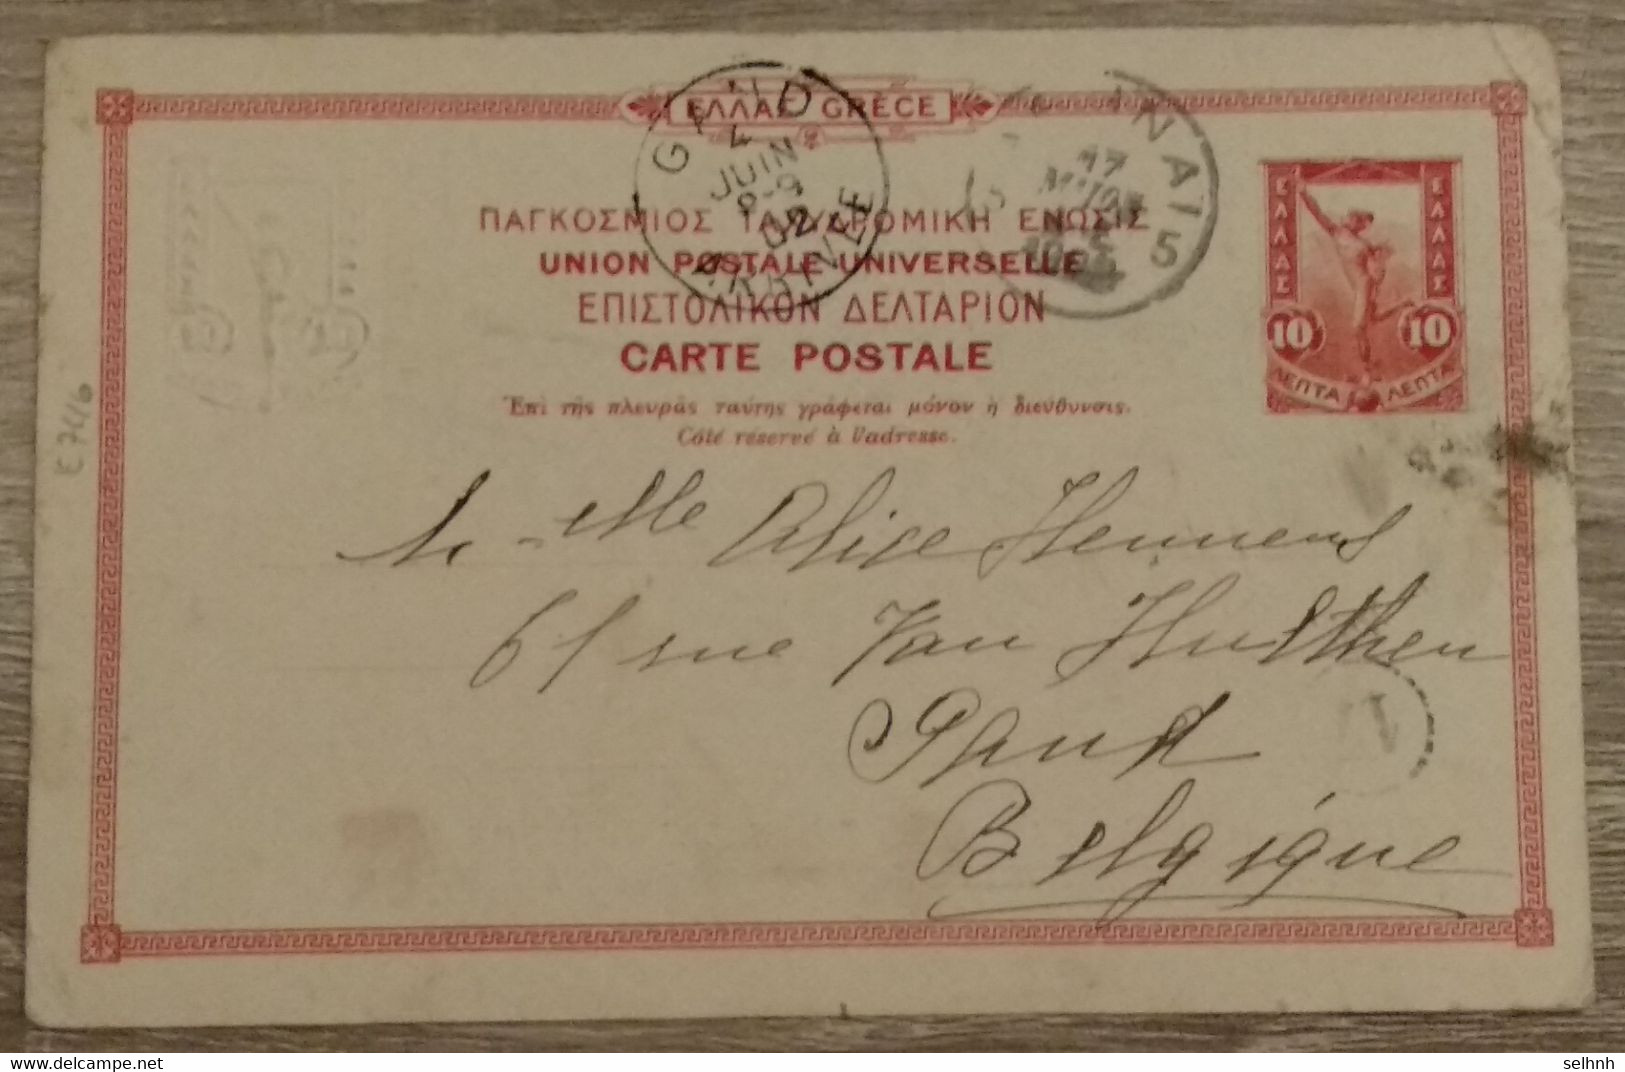 ΕΛΛΑΣ GRÈCE
GAND
4
JUIN
8-9
02
ARRIVÉE
ΠΑΓΚΟΣΜΙΟΣ ΤΑΧΥΔΡΟΜΙΚΗ ΕΝΩΣΙΣ
UNION POSTALE UNIVERSELLE
ΕΠΙΣΤΟΛΙΚΟΝ ΔΕΛΤΑΡΙΟΝ
CARTE POSTALE
Ἐπὶ τῆς πλευρᾶς ταύτης γράφεται μόνον ἡ διεύθυνσις.
Côté réservé à l'adresse.
ΝΑΙ 5
17
ΕΛΛΑΣ
ΕΛΛΑΣ
10 10
ΛΕΠΤΑ ΛΕΠΤΑ
Melle Alice Hennens
61 rue Van Hulthem
Gand
Belgique
E7416
selhnh